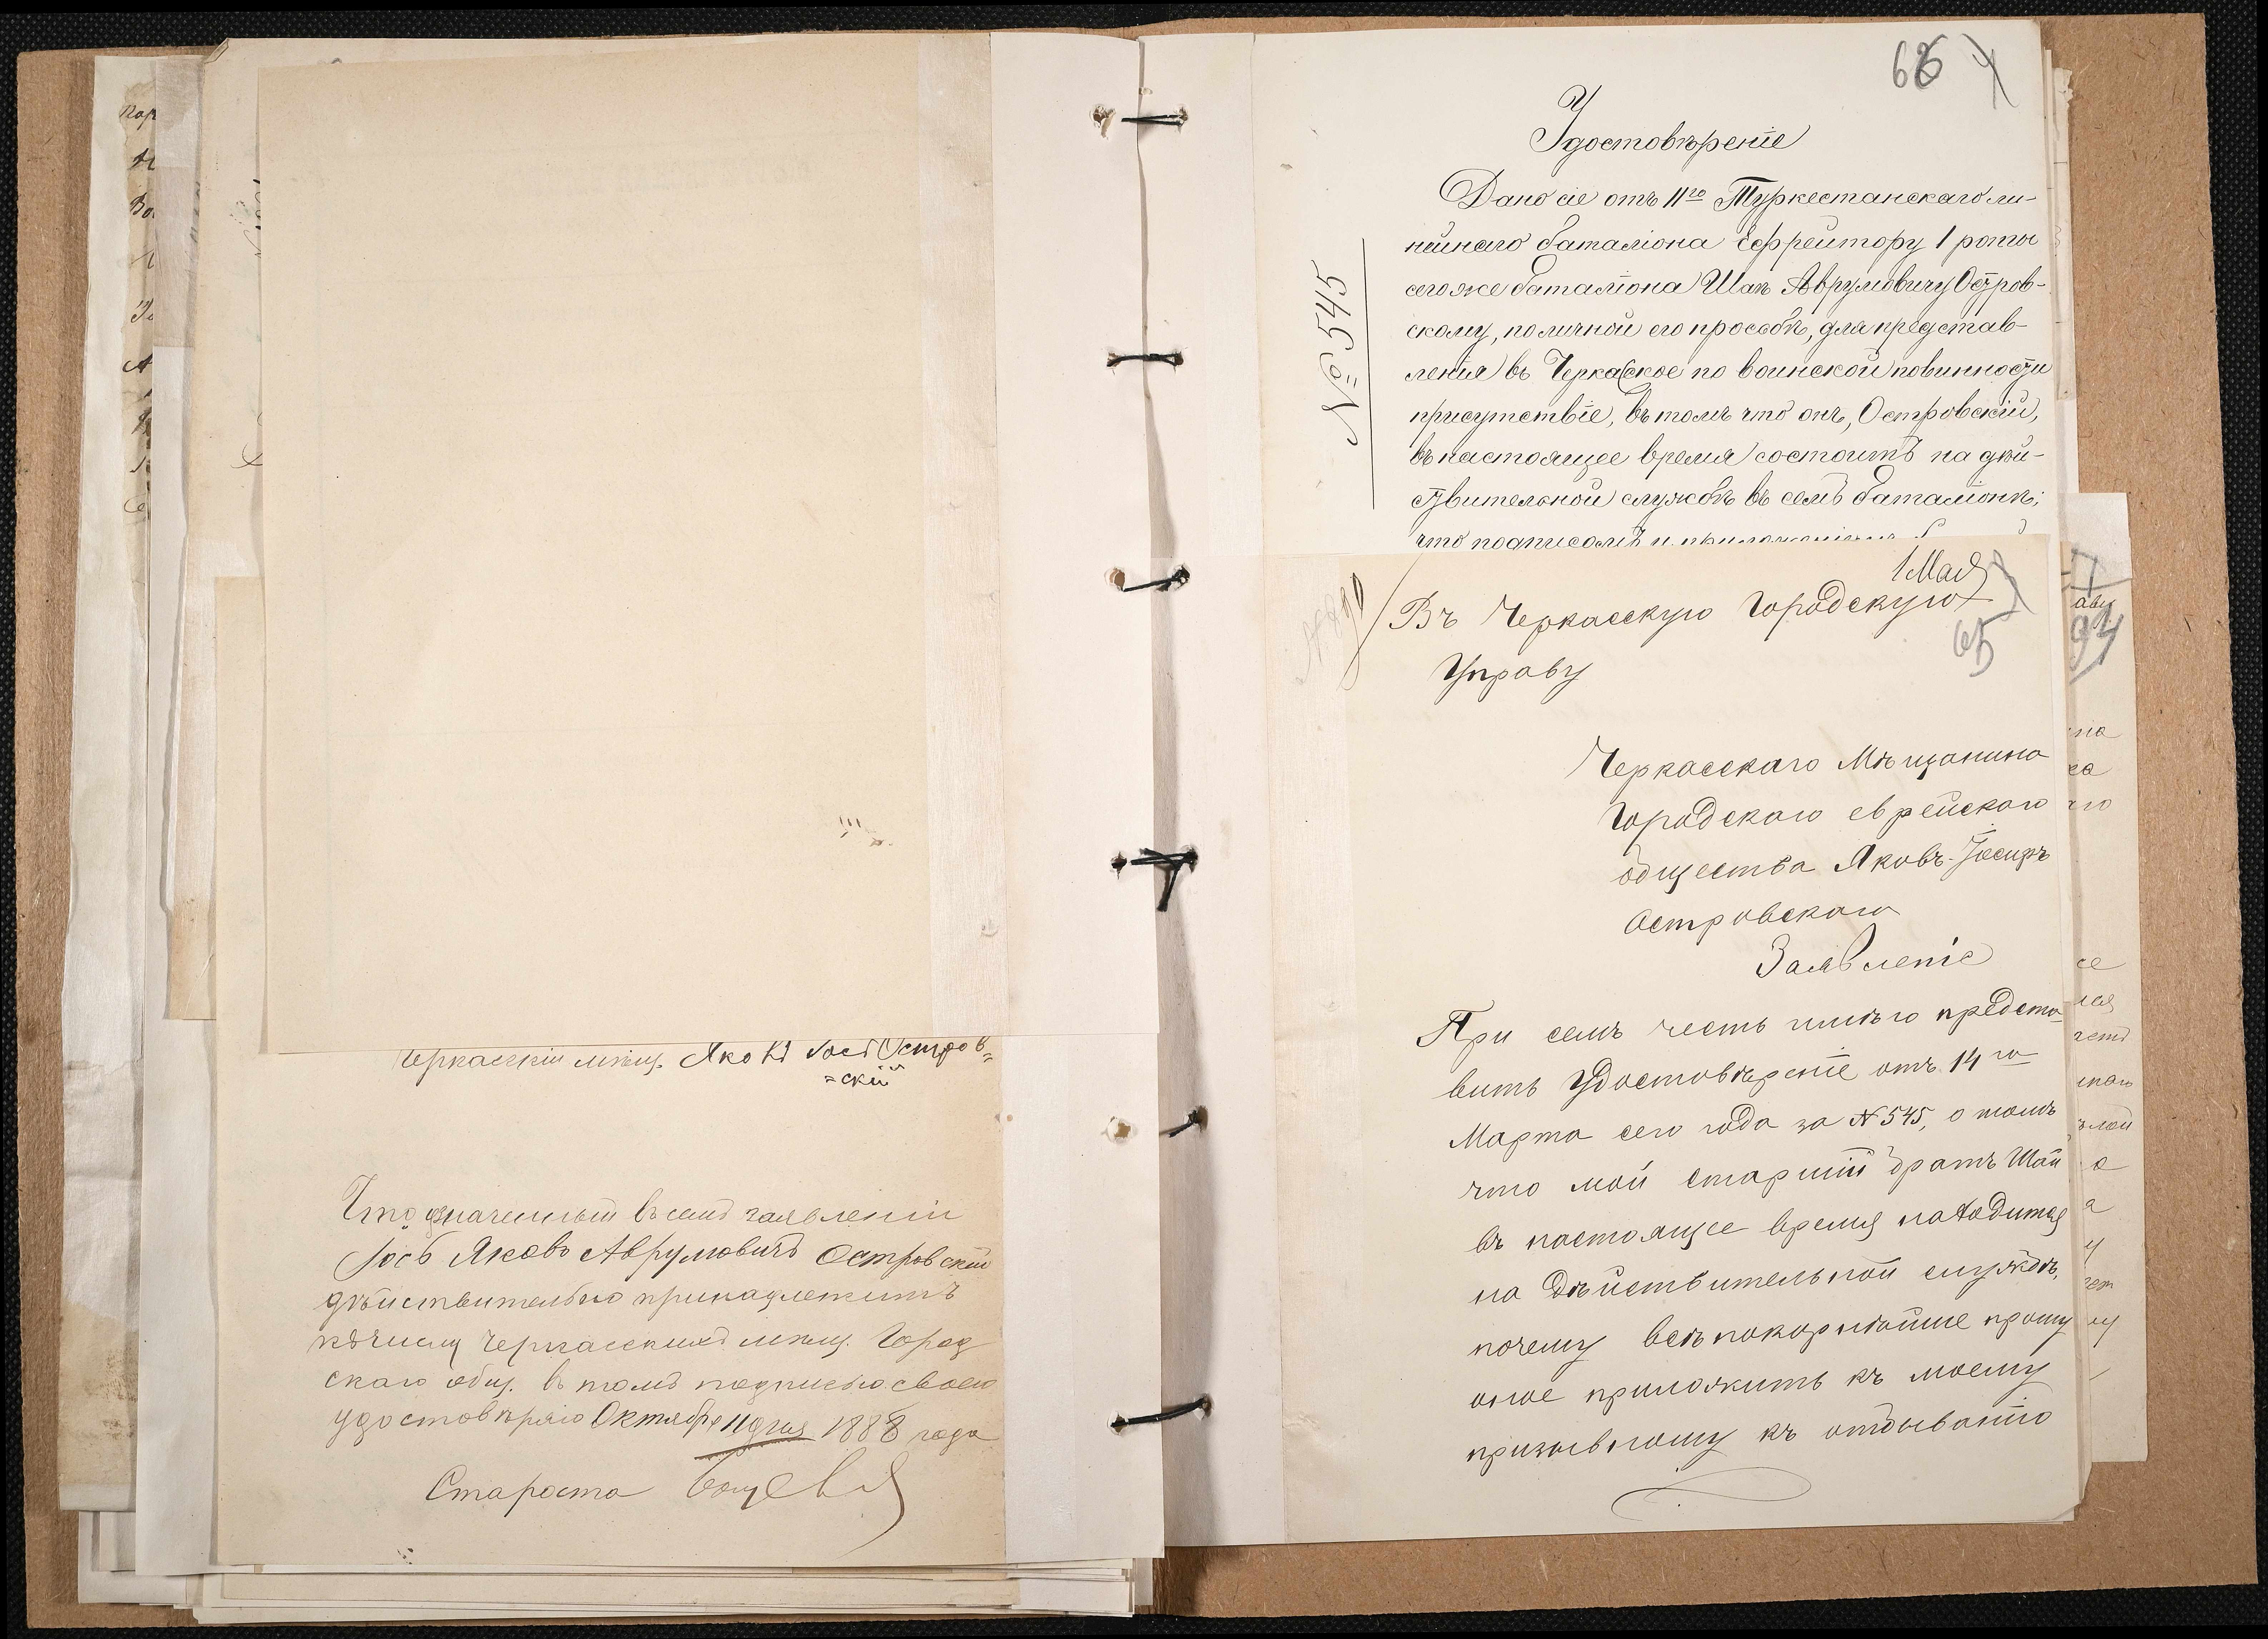 Черкаскій мѣщ. Яковъ Іось Островъ=
=скій
Что означенный въ семъ заявленіи
Іось Яковъ Аврумовичъ Островскій
дѣйствительно принадлежитъ
къ числу Черкасскихъ мѣщ. Город
скаго общ. въ томъ подписью своею
удостовѣряю Октября 11 дня 1888 года
Староста
66
Удостовѣреніе
№ 545
Дано сіе отъ 11го Туркестанскаго ли-
нейнаго баталіона Ефрейтору 1 роты
сего же баталіона Шаѣ Аврумовичу Остров-
скому, по личной его просьбѣ, для представ-
ленія въ Черкаское по воинской повинности
присутствіе, въ томъ что онъ, Островскій,
въ настоящее время состоитъ на дѣй-
ствительной службѣ въ семъ баталіонѣ;
что подписомъ и приложеніемъ
1 Мая
65
Въ Черкасскую Городскую
Управу
Черкасскаго Мѣщанина
Городскаго еврейскаго
общества Яковъ-Іосифъ
Островскаго
Заявленіе
При семъ честь имѣю предста-
вить Удостовѣреніе отъ 14го
Марта сего года за № 545, о томъ
что мой старшій братъ Шая
въ настоящее время находится
на дѣйствительной службѣ,
почему всѣпокорнѣйше прошу
оное приложить къ моему
призывному къ отбыванію
94